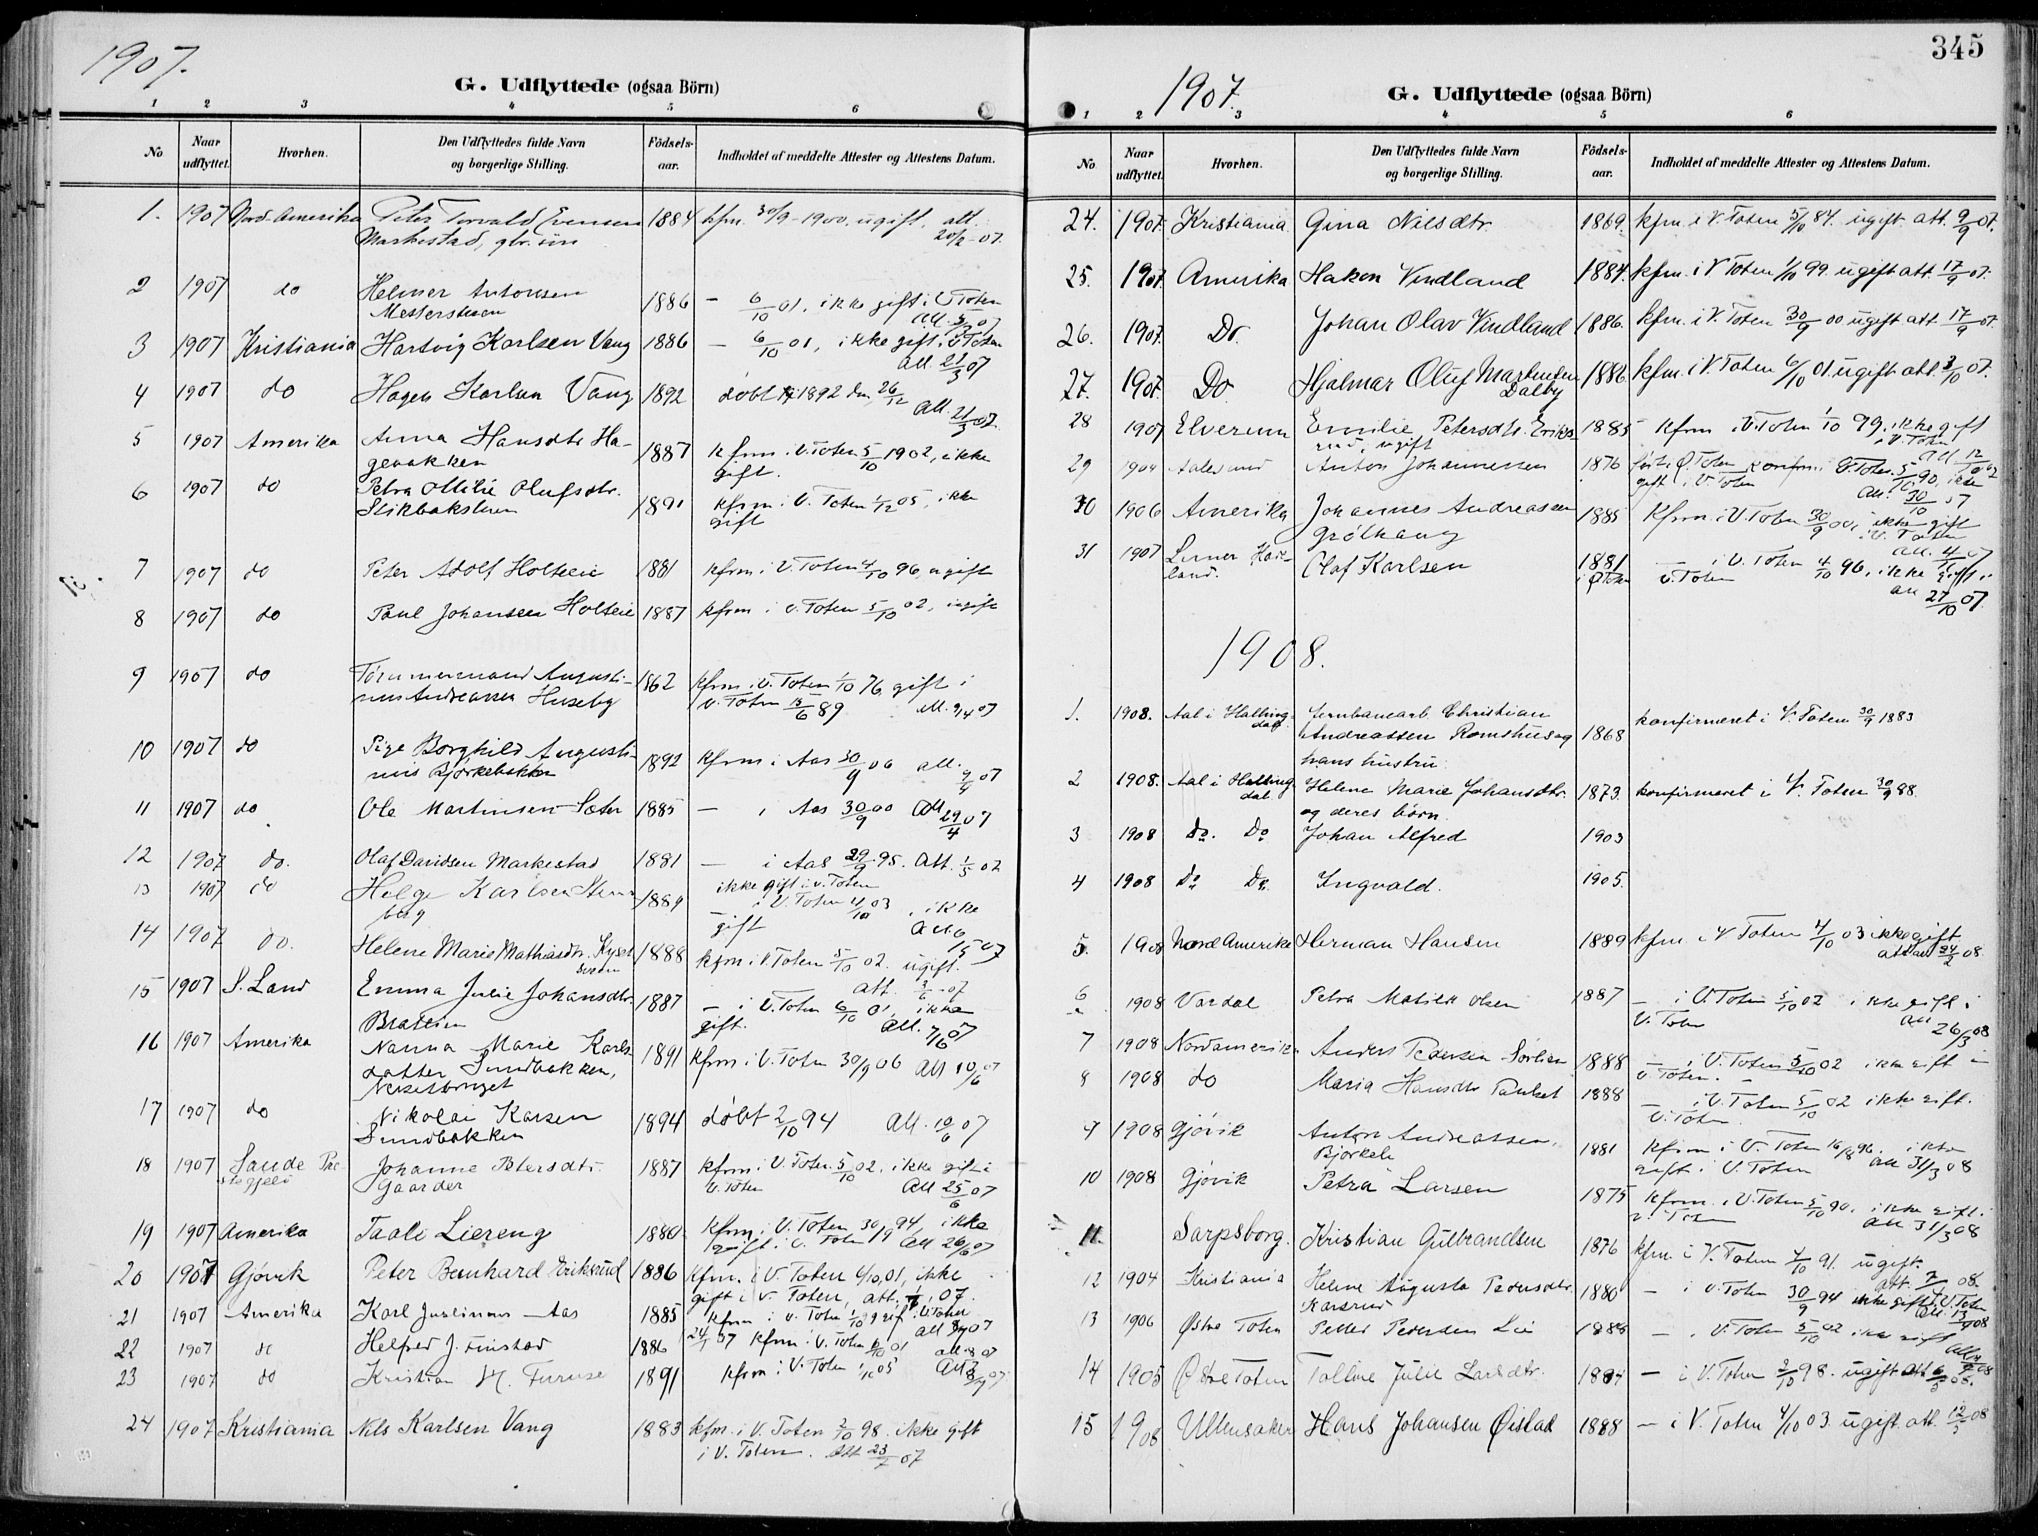 1907.
G. Udflyttede (ogsaa Börn)
1 2 3 4 5 6
No. Naar udflyttet. Hvorhen. Den Udflyttedes fulde Navn og borgerlige Stilling. Födsels-aar. Indholdet af meddelte Attester og Attestens Datum.
1. 1907 Nord-Amerika Peter Torvald Evensen 1884 kfm. 30/9-1900. ugift, att.
Markestad, gbr. 20/2-07.
2 1907 do Helmer Antonsen 1886 — 6/10 01, ikke gift i V Toten
3 1907 Kristiania Hartvig Karlsen Vang 1886 — 6/10 01, ikke gift i V Toten
att. 21/3 07
4 1907 do Hagen Karlsen Vang 1892 døbt 1892 den 26/12
att. 21/3 07.
5 1907 Amerika Anna Hansdtr Ha- 1887 kfrm i V. Toten 5/10 1902, ikke
gebakken gift.
6 1907 do Petra Otilie Olufsdtr. 1891 kfrm. i V. Toten 1/12 05, ikke
gift
7 1907 do Peter Adolf Holteie 1881 kfrm i V. Toten 4/10 96, ugift
8 1907 do Paul Johansen Holteie 1887 kfrm i V. Toten 5/10 02, ugift
9 1907 do Tømmermand Augusti- 1862 kfrm. i V. Toten 1/10 76, gift i
nus Andreassen Huseby V. Toten 15/6 89 att. 9/4 07
10 1907 do Pige Borghild Augusti- 1892 kfrm i Aas 30/9 06 att.
nus Bjørkebakken 9/4 07
11 1907 do Ole Martinsen Sæter 1885 — i Aas 30/9 00 att 29/4 07
12 1907 do. Olaf Davidsen Markestad 1881 — i Aas 29/9 95. Att. 1/5 07
ikke gift i V. Toten
13 1907 do Helge Karlsen Sten- 1889 — i V. Toten 4/10 03, ikke
berg gift
14 1907 do. Helene Marie Mathiasdtr. 1888 kfm i V. Toten 5/10 02. ugift.
att. 3/6-07
15 1907 S. Land Emma Julie Johansdtr 1887 — i V. Toten 6/10 01, ikke
gift. att. 7/6 07
16 1907 Amerika Nanna Marie Karls- 1891 kfm. i V. Toten 30/9 06 att 10/6 07
datter Sundbakken,
17 1907 do Nikolai Karsen 1894 døbt 2/10 94 att. 10/6 07
Sundbakken
18 1907 Sande Præ- Johanne Petersdtr. 1887 kfrm i V. Toten 5/10 02, ikke gift i
stegjeld Gaarder V. Toten att 25/6 07
19 1907 Amerika Taale Liereng 1880 kfrm. i V. Toten 30/9 94, ikke
gift i V. Toten att 26/6 07
20 1907 Gjøvik Peter Bernhard Eriksrud 1886 kfm. i V. Toten 6/10 01, ikke
gift i V. Toten, att. 07.
21 1907 Amerika Karl Justinus Aas 1885 kfrm i V. Toten
22 1907 do Helfred J. Finstad 1886 kfrm i V. Toten 6/10 01
23 1907 do Kristian M. Furuse 1891 kfrm i V. Toten 1/10 05
24 1907 Kristiania Nils Karlsen Vang 1883 kfm. i V. Toten 2/10 98. ikke gift
i V. Toten. Att 23/7 07
345
1907.
G. Udflyttede (ogsaa Börn)
1 2 3 4 5 6
No. Naar udflyttet. Hvorhen. Den Udflyttedes fulde Navn og borgerlige Stilling. Födsels-aar. Indholdet af meddelte Attester og Attestens Datum.
24. 1907. Kristiania Gina Nilsdtr. 1869. kfm. i V. Toten 5/10 84. ugift. att. 9/9 07.
25. 1907. Amerika Hakon Vindland 1884. kfm. i V Toten 1/10 99. ugift att. 17/9 07.
26. 1907. Do. Johan Olav Vindland 1886. kfm. i V. Toten 30/9 00 ugift att. 17/9 07.
27. 1907. Do Hjalmar Oluf Martinsen 1886 kfm. i V. Toten 6/10 01 ugift att. 3/10 07.
Dalby
28 1907 Elverum Emilie Petersdtr. Eriks- 1885 kfrm i V. Toten 1/10 99, ikke gift
rud, ugift i V. Toten
29 1904 Aalesund Anton Johannessen 1876 født i Ø. Toten konfrm. i V. Toten 5/10 90, ikke
gift i V. Toten att. 30/10 07
30 1906 Amerika Johannes Andreassen 1885 kfrm. i V. Toten 30/9 00, ikke gift
Grølhaug i V. Toten
31 1907 Olaf Karlsen 1881 — i V. Toten 4/10 96, ikke gift i
i Ø Toten V. Toten att 27/10 07.
1908.
1. 1908. Aal i Halling- Jernbanearb. Christian
dal Andreassen Romshusag 1868 konfirmeret i V. Toten 30/9 1883
hans hustru
2 1908. Aal i Halling- Helene Marie Johansdtr. 1873. konfirmeret i V. Toten 30/9 88.
dal og deres børn.
3 1908 Do. Do Johan Alfred 1903
4 1908 Do Do. Ingvald. 1905.
5. 1908 Nord Amerika Herman Hansen 1889 kfm i V Toten 4/10 03 ikke gift
08
6 1908 Vardal Petra Matilde Olsen 1887 — i V. Toten 5/10 02 ikke gift i
V. Toten att 26/3 08
7 1908 Nordamerika Anders Pedersen Sørlien 1888 — i V. Toten 5/10 02 ikke gift i
V. Toten.
8 1908 do Maria Hansdtr 1888 — i V. Toten 5/10 02 ikke gift.
V. Toten
9 1908 Gjøvik Anton Andreassen, 1881 kfrm i V. Toten 16/8 96, ikke
Bjørkeli gift i V. Toten att 31/3 08
10 1908 Gjøvik Petra Larsen 1875 kfrm. i V. Toten 5/10 90, ikke gift i
V. Toten att 31/3 08
11. Sarpsborg. Kristian Gulbrandsen 1876 kfm. i V. Toten 4/10 91. ugift.
att. 7/ 08.
12 1904 Kristiania Helene Augusta Pedersdtr. 1880 — i V. Toten 30/9 94 ikke gift i V. Toten
13 1906 Østre Toten Petter Pedersen Lie 1888 — i V. Toten 5/10 02 ikke gift
14 1905 Østre Toten Talline Julie Larsdtr. 1884 — i V. Toten 2/10 98. ugift att 08.
15 1908 Ullensaker Hans Johansen Øistad 1888 — i V. Toten 4/10 03. ugift. att. 12/5 08